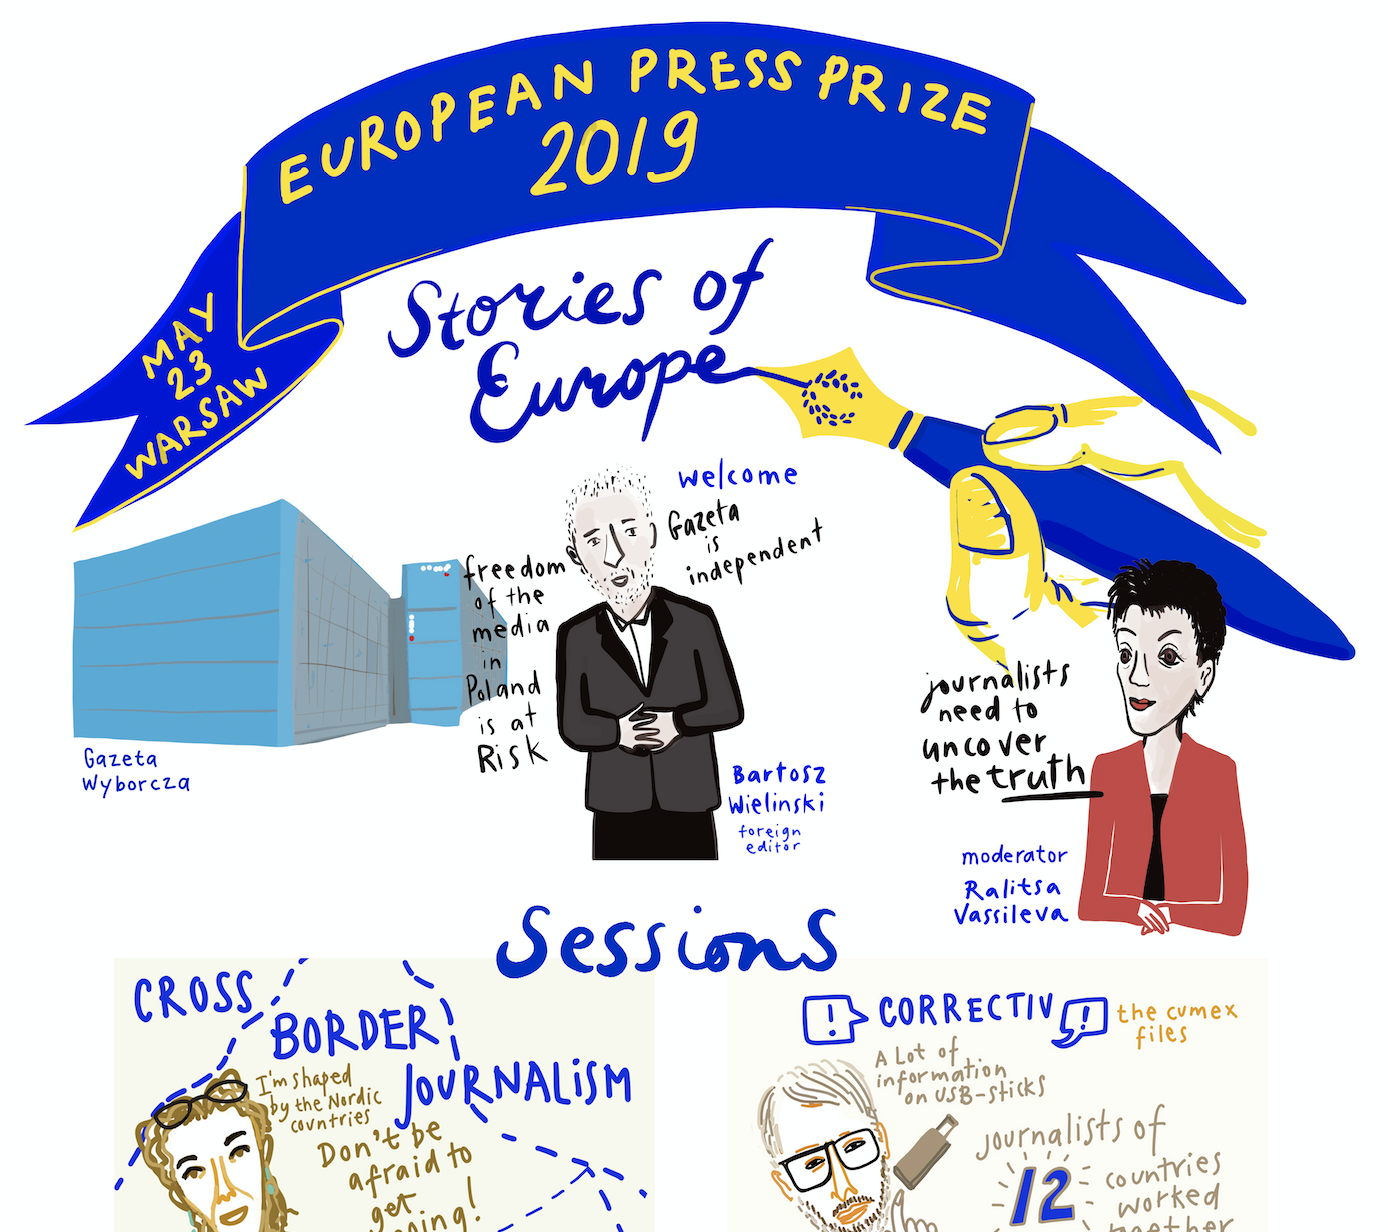 EUROPEAN PRESS PRIZE
2019
MAY
23
WARSAW
Stories of
Europe
welcome
Gazeta
is
independent
freedom
of the
media
in
Poland
is at
Risk
Gazeta
Wyborcza
Bartosz
Wielinski
foreign
editor
journalists
need to
uncover
the truth
moderator
Ralitsa
Vassileva
Sessions
CROSS
BORDER
JOURNALISM
I'm shaped
by the Nordic
countries
Don't be
afraid to
get
! CORRECTIV !
the cumex
files
A Lot of
information
on USB-sticks
journalists of
12
countries
worked